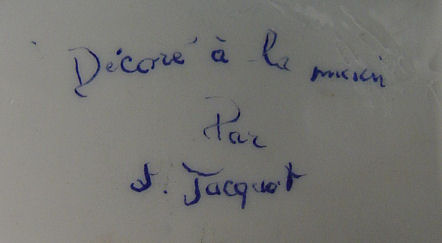 Décoré à la main
Par
J. Jacquot